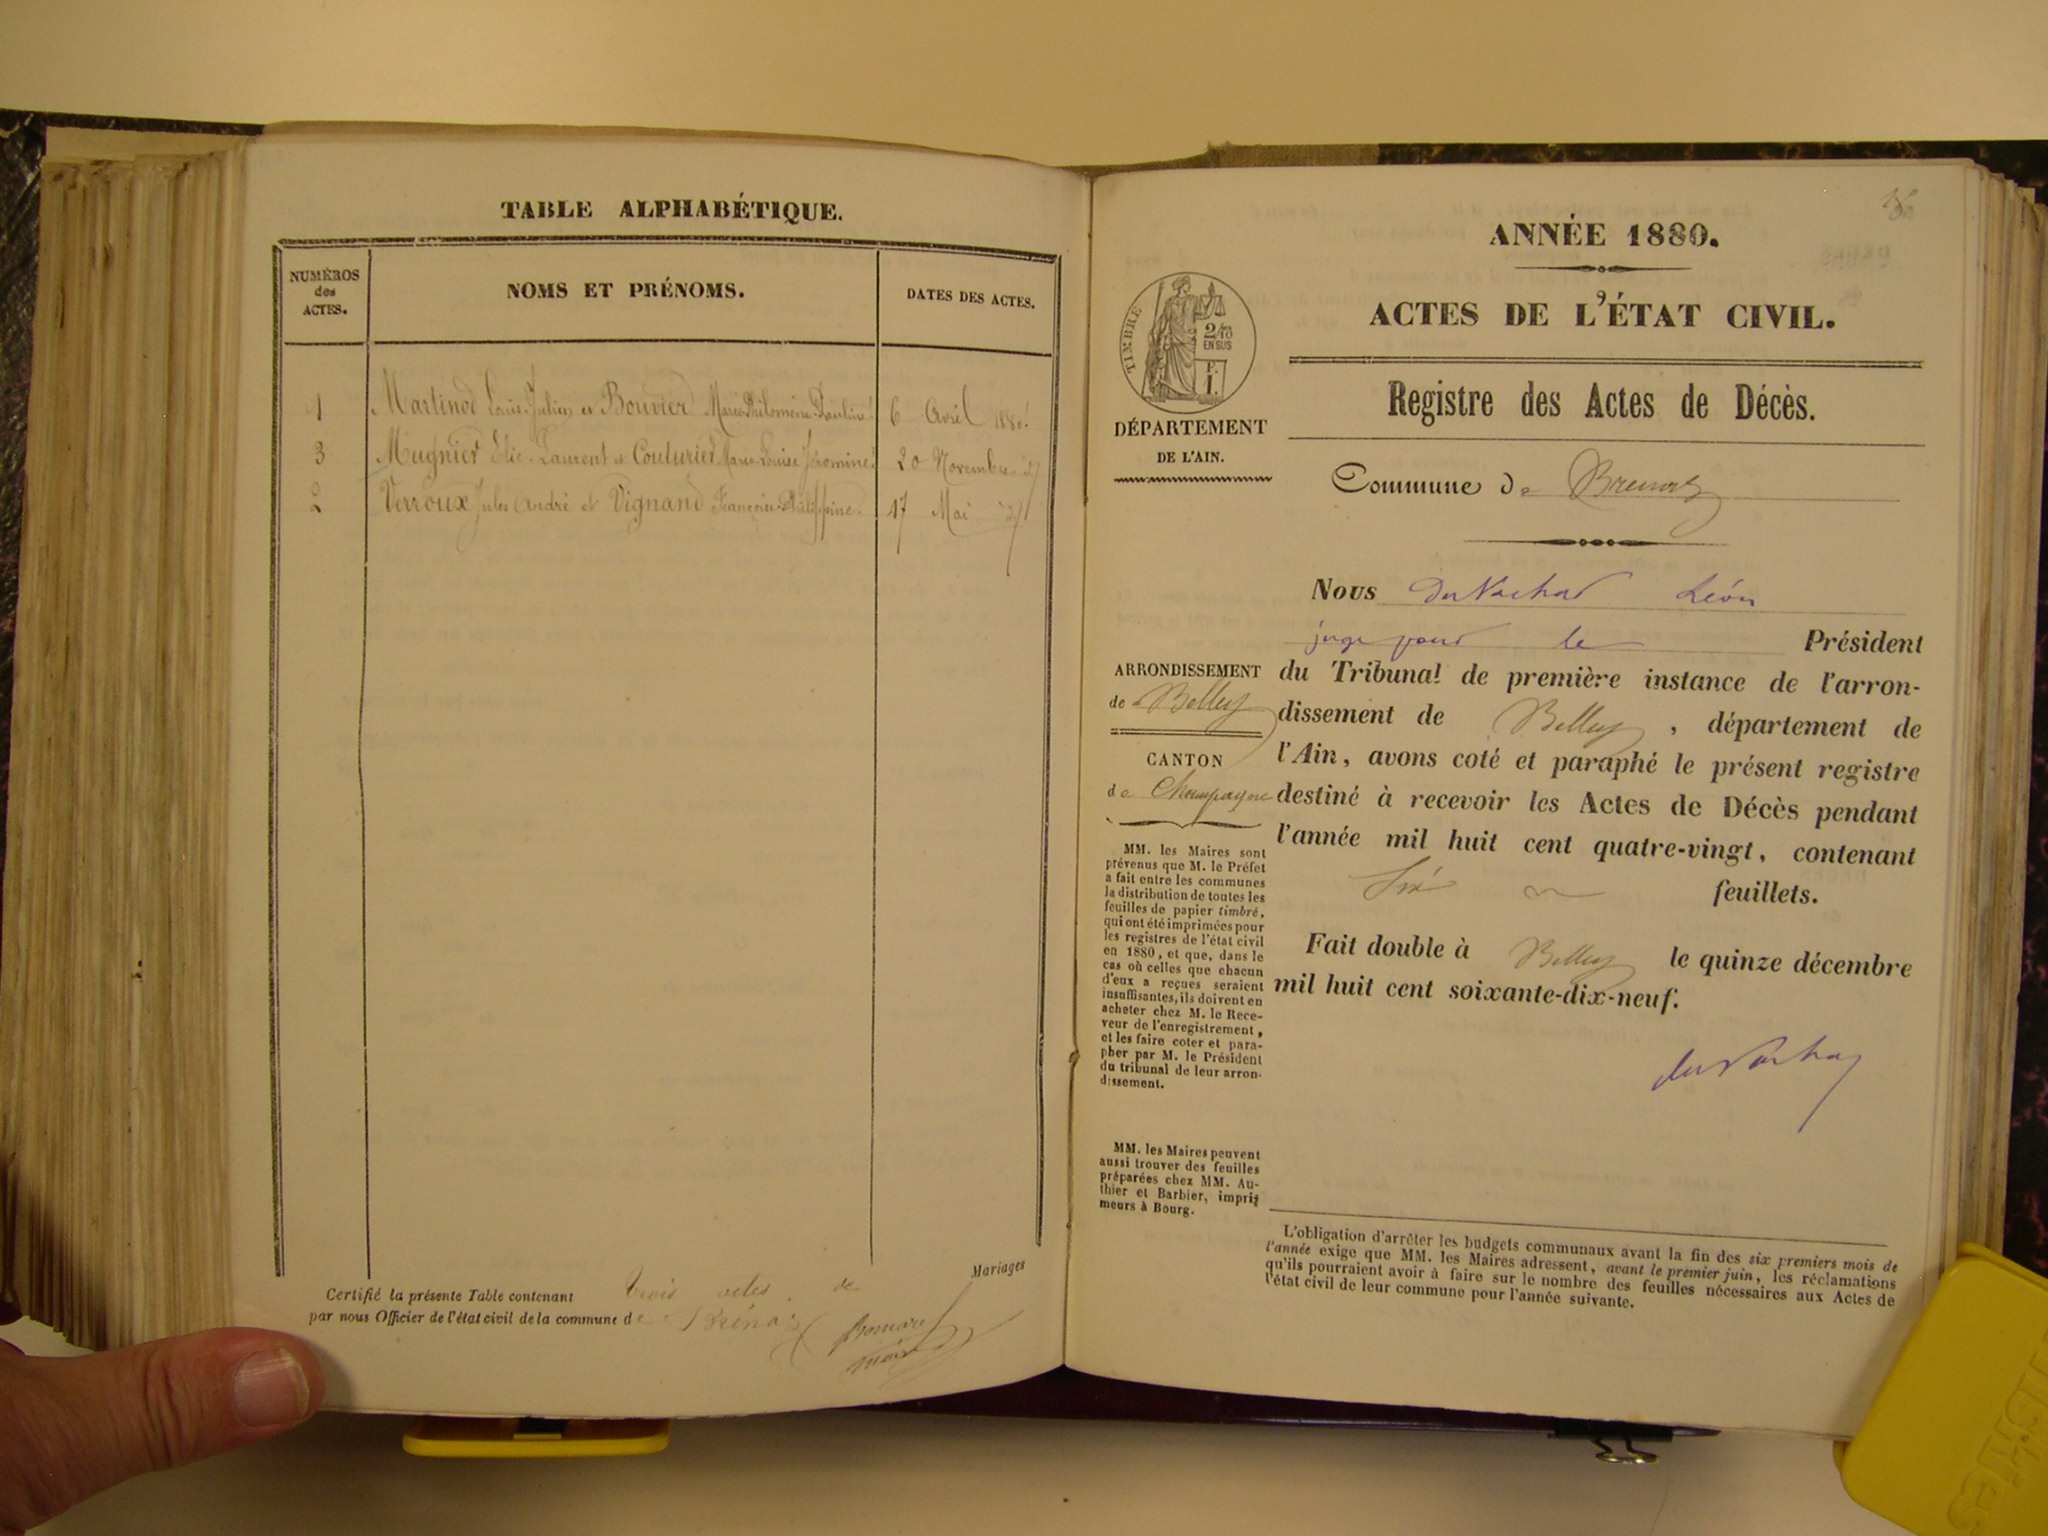 TABLE ALPHABÉTIQUE.
NUMÉROS
des
ACTES.
NOMS ET PRÉNOMS.
DATES DES ACTES.
1 Martinod Louis Julien et Bouvier Marie Philomène Pauline 6 Avril 1880
3 Mugnier Elie Laurent et Couturier Marie Louise 20 Novembre
2 Verroux Jules André et Vignand Françoise Philippine 17 Mai
Mariages
Certifié la présente Table contenant trois actes de
par nous Officier de l'état civil de la commune de Brénaz
maire
ANNÉE 1880.
ACTES DE L'ÉTAT CIVIL.
TIMBRE
2/10
EN SUS
F.
1.
DÉPARTEMENT
DE L'AIN.
Registre des Actes de Décès.
Commune de Brenaz
Nous Léon
juge pour le Président
du Tribunal de première instance de l'arron-
dissement de Belley, département de
l'Ain, avons coté et paraphé le présent registre
destiné à recevoir les Actes de Décès pendant
l'année mil huit cent quatre-vingt, contenant
Six feuillets.
Fait double à Belley le quinze décembre
mil huit cent soixante-dix-neuf.
ARRONDISSEMENT
de Belley
CANTON
de Champagne
MM. les Maires sont
prévenus que M. le Préfet
a fait entre les communes
la distribution de toutes les
feuilles de papier timbré,
qui ont été imprimées pour
les registres de l'état civil
en 1880, et que, dans le
cas où celles que chacun
d'eux a reçues seraient
insuffisantes, ils doivent en
acheter chez M. le Rece-
veur de l'enregistrement,
et les faire coter et para-
pher par M. le Président
du tribunal de leur arron-
dissement.
MM. les Maires peuvent
aussi trouver des feuilles
préparées chez MM. Au-
thier et Barbier, impri-
meurs à Bourg.
L'obligation d'arrêter les budgets communaux avant la fin des six premiers mois de
l'année exige que MM. les Maires adressent, avant le premier juin, les réclamations
qu'ils pourraient avoir à faire sur le nombre des feuilles nécessaires aux Actes de
l'état civil de leur commune pour l'année suivante.